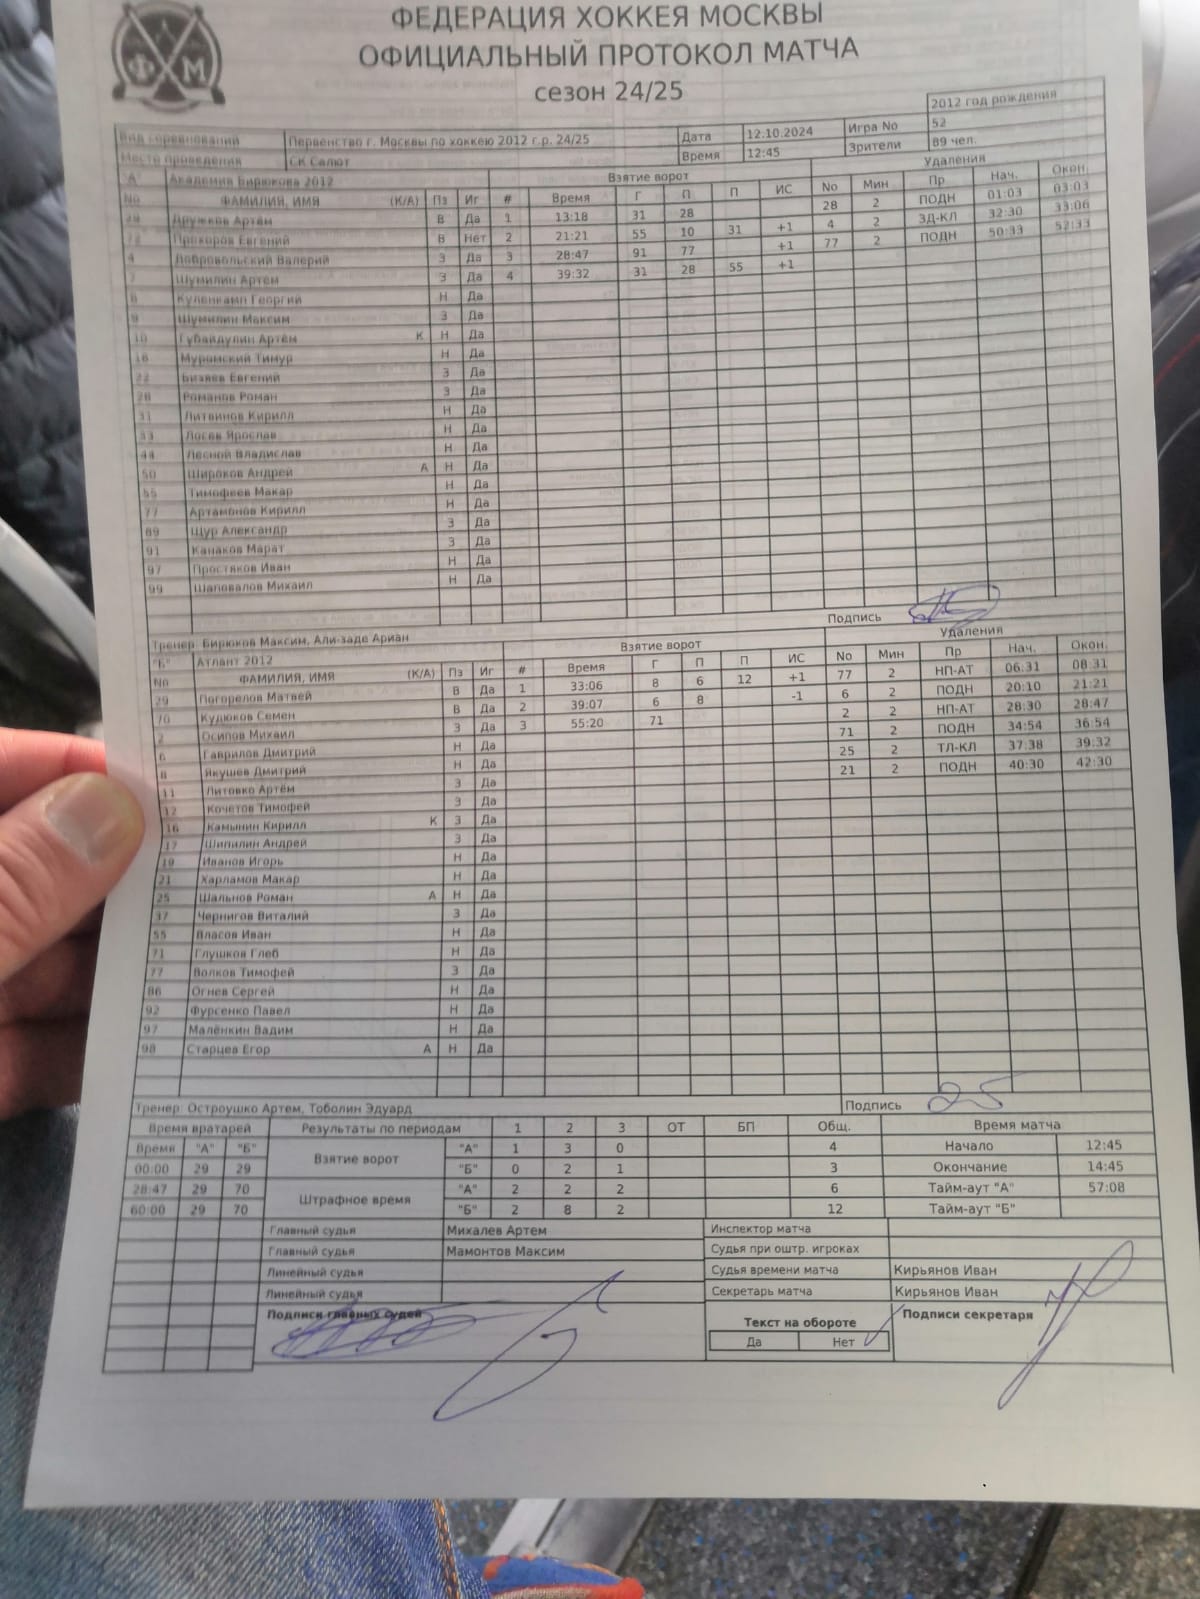 ФЕДЕРАЦИЯ ХОККЕЯ МОСКВЫ
ОФИЦИАЛЬНЫЙ ПРОТОКОЛ МАТЧА
сезон 24/25
ФХМ
2012 год рождения
Вид соревнований Первенство г. Москвы по хоккею 2012 г.р. 24/25 Дата 12.10.2024 Игра No 52
Место проведения СК Салют Время 12:45 Зрители 89 чел.
"А" Академия Бирюкова 2012 Взятие ворот Удаления
No ФАМИЛИЯ, ИМЯ (К/А) Пз Иг # Время Г П П ИС No Мин Пр Нач. Окон.
29 Дружков Артём В Да 1 13:18 31 28 28 2 ПОДН 01:03 03:03
Прохоров Евгений В Нет 2 21:21 55 10 31 +1 4 2 ЗД-КЛ 32:30 33:06
4 Добровольский Валерий З Да 3 28:47 91 77 +1 77 2 ПОДН 50:33 52:33
7 Шумилин Артём З Да 4 39:32 31 28 55 +1
Куленкамп Георгий Н Да
9 Шумилин Максим З Да
10 Губайдулин Артём К Н Да
18 Муромский Тимур Н Да
22 Бизяев Евгений З Да
28 Романов Роман З Да
31 Литвинов Кирилл Н Да
33 Лосев Ярослав Н Да
44 Лесной Владислав Н Да
50 Широков Андрей А Н Да
55 Тимофеев Макар Н Да
77 Артамонов Кирилл Н Да
89 Щур Александр З Да
91 Канаков Марат З Да
97 Простяков Иван Н Да
99 Шаповалов Михаил Н Да
Тренер: Бирюков Максим, Али-заде Ариан Подпись
"Б" Атлант 2012 Взятие ворот Удаления
No ФАМИЛИЯ, ИМЯ (К/А) Пз Иг # Время Г П П ИС No Мин Пр Нач. Окон.
29 Погорелов Матвей В Да 1 33:06 8 6 12 +1 77 2 НП-АТ 06:31 08:31
70 Кудюков Семен В Да 2 39:07 6 8 -1 6 2 ПОДН 20:10 21:21
2 Осипов Михаил З Да 3 55:20 71 2 2 НП-АТ 28:30 28:47
6 Гаврилов Дмитрий Н Да 71 2 ПОДН 34:54 36:54
8 Якушев Дмитрий Н Да 25 2 ТЛ-КЛ 37:38 39:32
11 Литовко Артём З Да 21 2 ПОДН 40:30 42:30
12 Кочетов Тимофей З Да
16 Камынин Кирилл К З Да
17 Шипилин Андрей З Да
19 Иванов Игорь Н Да
21 Харламов Макар Н Да
25 Шальнов Роман А Н Да
37 Чернигов Виталий З Да
55 Власов Иван Н Да
71 Глушков Глеб Н Да
77 Волков Тимофей З Да
86 Огнев Сергей Н Да
92 Фурсенко Павел Н Да
97 Малёнкин Вадим Н Да
98 Старцев Егор А Н Да
Тренер: Остроушко Артем, Тоболин Эдуард Подпись
Время вратарей Результаты по периодам 1 2 3 ОТ БП Общ. Время матча
Время "А" "Б" Взятие ворот "А" 1 3 0 4 Начало 12:45
00:00 29 29 "Б" 0 2 1 3 Окончание 14:45
28:47 29 70 Штрафное время "А" 2 2 2 6 Тайм-аут "А" 57:08
60:00 29 70 "Б" 2 8 2 12 Тайм-аут "Б"
Главный судья Михалев Артем Инспектор матча
Главный судья Мамонтов Максим Судья при оштр. игроках
Линейный судья Судья времени матча Кирьянов Иван
Линейный судья Секретарь матча Кирьянов Иван
Подписи главных судей Текст на обороте Подписи секретаря
Да Нет